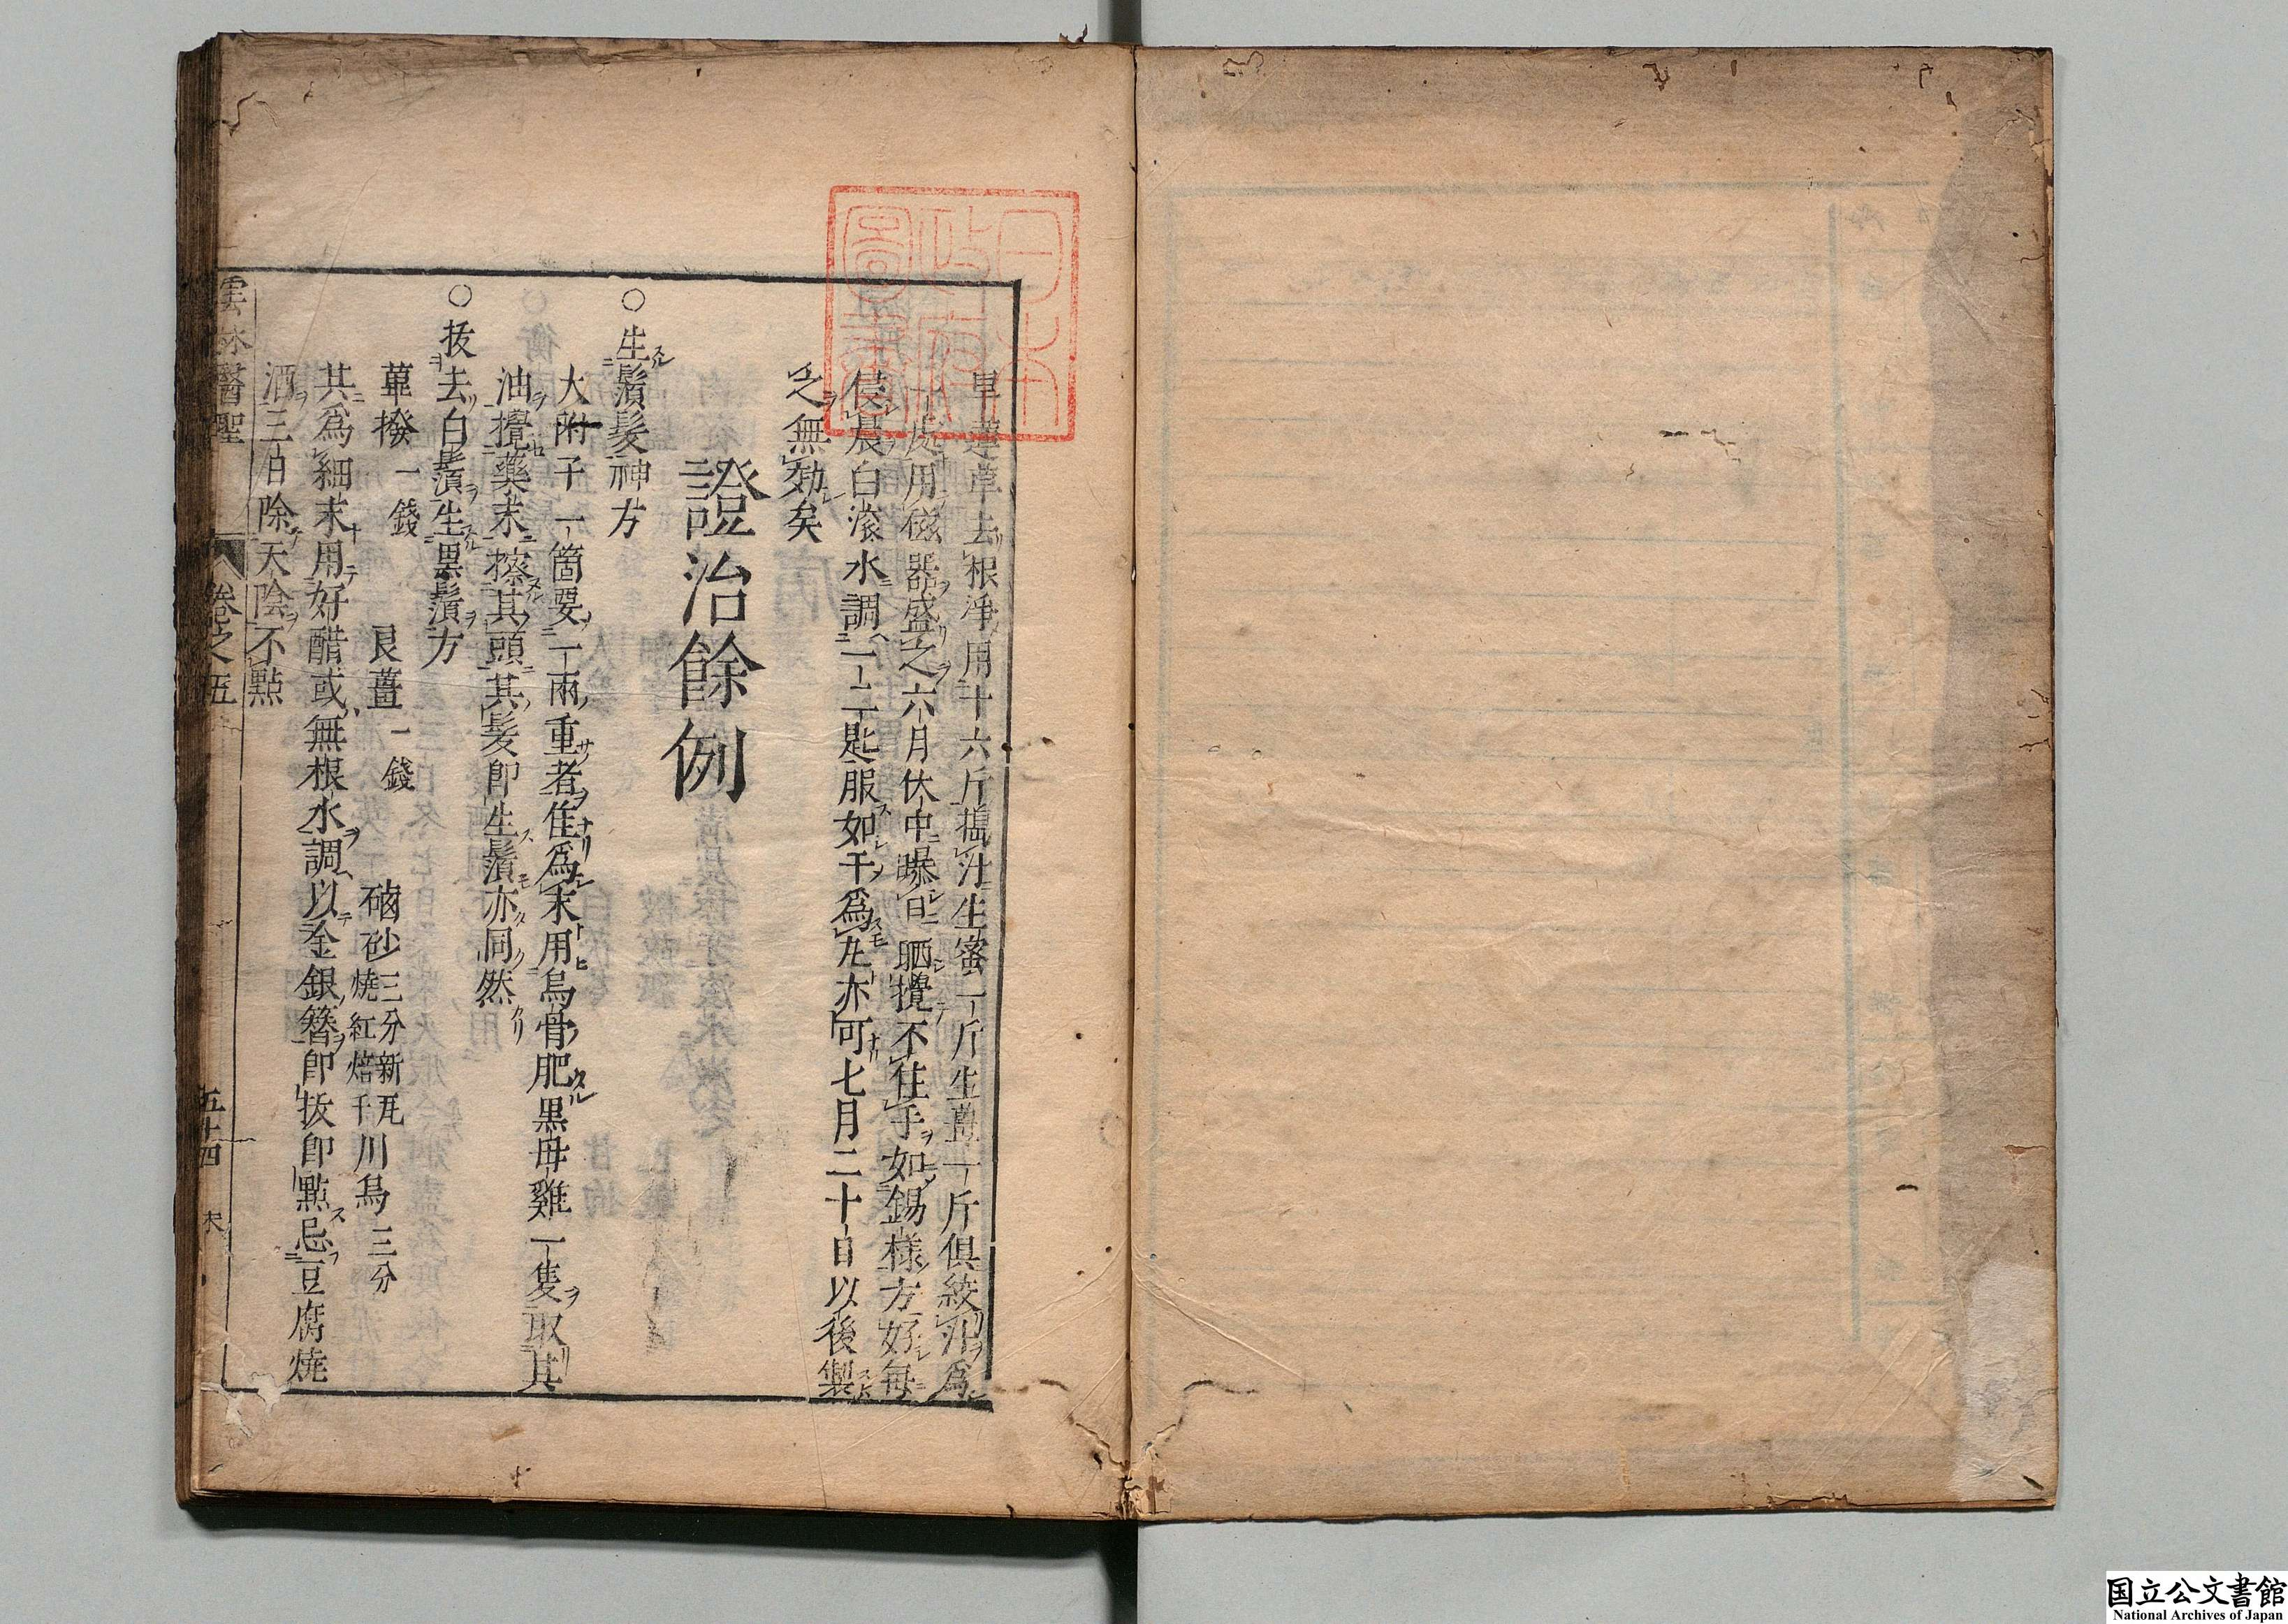 旱蓮草去根淨用十六斤搗汁生蜜一斤生薑一斤俱絞汁爲
一處用磁器盛之六月伏中曝日晒攪不住手如錫樣方好每
侵晨白滚水調一二匙服如干爲丸亦可七月二十日以後製
之無効矣
證治餘例
○生鬚髮神方
大附子一箇要一兩重者佳爲末用烏骨肥黒母雞一隻取其
油攪藥末擦其頭其髮卽生鬚亦同然
○抜去白鬚生黒鬚方
蓽撥一錢 良薑一錢 硇砂三分新瓦燒紅焙干 川烏三分
其爲細末用好醋或無根水調以金銀簪卽抜卽點忌豆腐燒
酒三日除天陰不點
雲林醫聖 卷之五 五十四 木
日本政府圖書
国立公文書館
National Archives of Japan